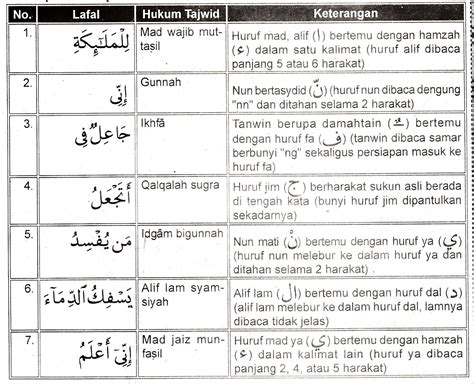 No. Lafal Hukum Tajwid Keterangan
1. لِلْمَلٰٓئِكَةِ Mad wajib mut-
tasil
Huruf mad, alif (ا) bertemu dengan hamzah
(ء) dalam satu kalimat (huruf alif dibaca
panjang 5 atau 6 harakat)
2. اِنِّى Gunnah Nun bertasydid (نّ) (huruf nun dibaca dengung
"nn" dan ditahan selama 2 harakat)
3. جَاعِلٌ فِى Ikhfā Tanwin berupa damahtain (ـٌ) bertemu
dengan huruf fa (ف) (tanwin dibaca samar
berbunyi "ng" sekaligus persiapan masuk ke
huruf fa)
4. اَتَجْعَلُ Qalqalah sugra Huruf jim (ج) berharakat sukun asli berada
di tengah kata (bunyi huruf jim dipantulkan
sekadarnya)
5. مَنْ يُفْسِدُ Idgām bigunnah Nun mati (نْ) bertemu dengan huruf ya (ي)
(huruf nun melebur ke dalam huruf ya dan
ditahan selama 2 harakat)
6. يَسْفِكُ الدِّمَآءَ Alif lam syam-
siyah
Alif lam (ال) bertemu dengan huruf dal (د)
(alif lam melebur ke dalam huruf dal, lamnya
dibaca tidak jelas)
7. اِنِّىٓ اَعْلَمُ Mad jaiz mun-
fasil
Huruf mad ya (ي) bertemu dengan hamzah
(ء) dalam kalimat lain (huruf ya dibaca
panjang 2, 4, atau 5 harakat)